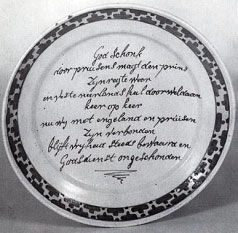 God schonk
door pruisens magt den prins
Zyn regte weer
en rukte neerlands heil door woldaaen
keer op keer
nu wy met engeland en pruisen
Zyn verbonden
blyft vryheid steeds bewaard en
Godsdienst ongeschonden